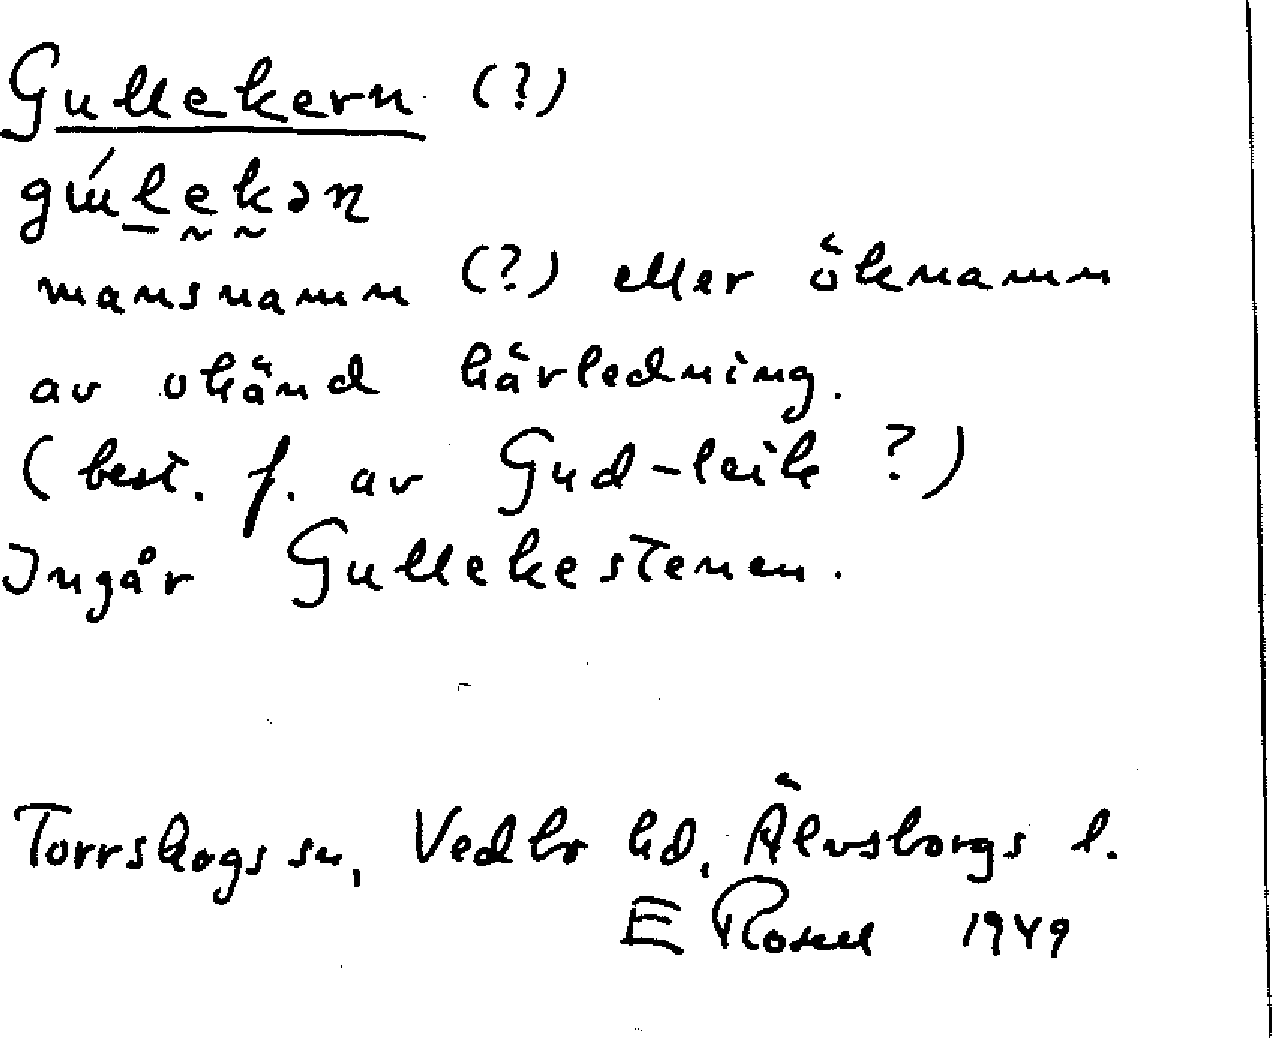 Gullekern (?)
gúlekən
mansnamn (?) eller öknamn
av okänd härledning.
(best. f. av Gud-leik ?)
Ingår Gullekestenen.
Torrskogs sn, Vedbo hd, Älvsborgs l.
E Rosell 1949